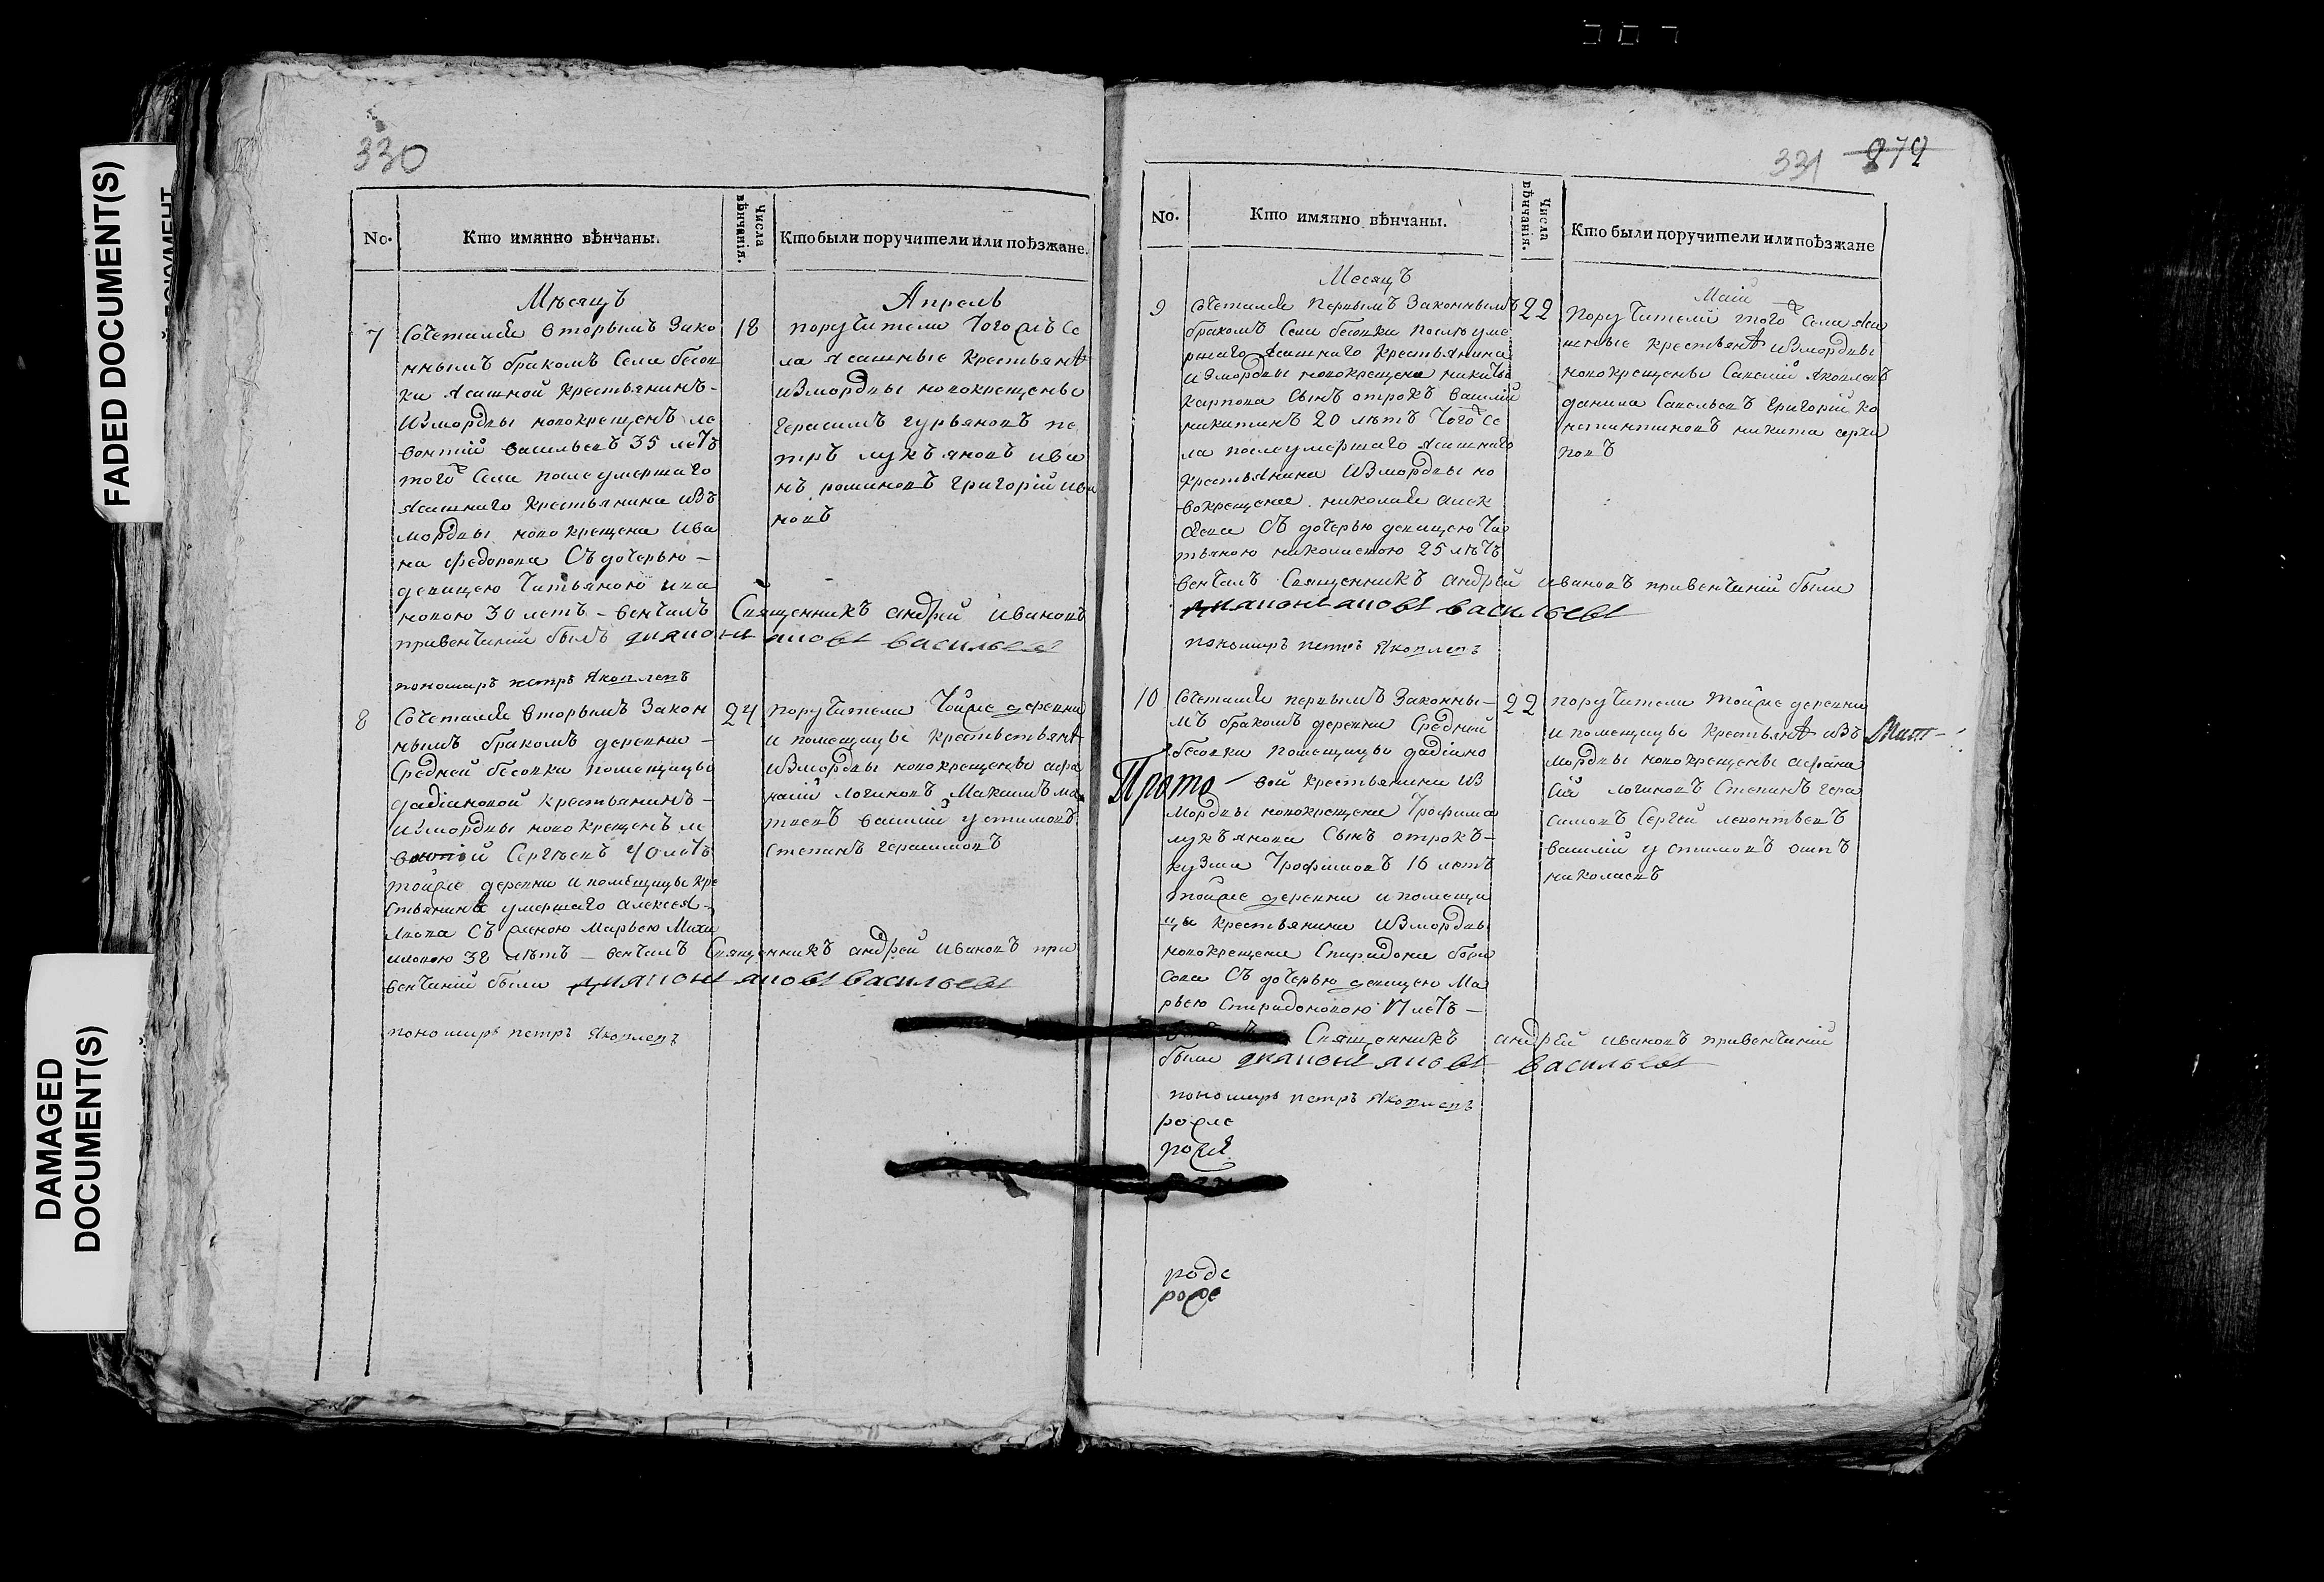 FADED DOCUMENT(S)
DAMAGED
DOCUMENT(S)
330
No.
Кто имянно вѣнчаны.
Числа
вѣнчанія.
Кто были поручители или поѣзжане.
Мѣсяцъ
Апрель
7
Сочетался вторымъ зако
ннымъ бракомъ села бесов
ки ясашной крестьянинъ -
измордвы новокрещенъ ле
вонтий васильевъ 35 летъ
того села после умершаго
ясашнаго крестьянина изъ
мордвы новокрещена ива
на федорова съ дочерью -
девицею татьяною ива
новою 30 летъ - венчалъ Священникъ андрей ивановъ
привенчании былъ диаконъ яковъ васильевъ
пономаръ петръ Яковлевъ
18
поручители тогожъ се
ла ясашные крестьянѣ
измордвы новокрещены
герасимъ гурьяновъ пе
тръ лукъяновъ ива
нъ родионовъ григорий ива
новъ
8
Сочетался вторымъ закон
нымъ бракомъ деревни -
Средней бесовки помещицы
фадіановой крестьянинъ -
измордвы новокрещенъ ле
вонтий Сергѣевъ 40 летъ
тойже деревни и помещицы кре
стьянина умершаго алексея
съ женою марьею миха
иловою 38 лѣтъ - венчалъ Священникъ андрей ивановъ при
венчании были диаконъ яковъ васильевъ
пономаръ петръ Яковлевъ
24
поручители тойже деревни
и помещицы крестьянѣ
измордвы новокрещены афа
насий логиновъ Максимъ ма
твеевъ василий устимовъ
Степанъ герасимовъ
331
279
No.
Кто имянно вѣнчаны.
Числа
вѣнчанія.
Кто были поручители или поѣзжане
Месяцъ
Маій
9
Сочетался первымъ законнымъ
бракомъ села бесовки после уме
ршаго ясашнаго крестьянина
измордвы новокрещена никиты
карпова сынъ отрокъ василий
никитинъ 20 лѣтъ того се
ла после умершаго ясашнаго
крестьянина измордвы но
вокрещена николая алек
сеева съ дочерью девицею та
тьяною николаевою 25 лѣтъ
венчалъ Священникъ андрей ивановъ привенчании были
диаконъ яковъ васильевъ
пономаръ петръ Яковлевъ
22
поручители того села яса
шные крестьянѣ измордвы
новокрещены савелий яковлевъ
данила савельевъ григорий ко
нстантиновъ никита
повъ
10
Сочетался первымъ законны-
мъ бракомъ деревни Средней
бесовки помещицы фадіано
вой крестьянина из
мордвы новокрещена трофима
лукъянова сынъ отрокъ -
кузма трофимовъ 16 лѣтъ
тойже деревни и помещи
цы крестьянина измордвы
новокрещена Спиридона бори
сова съ дочерью девицею ма
рьею Спиридоновою 17 летъ -
Священникъ андрей ивановъ привенчании
были диаконъ яковъ васильевъ
пономаръ петръ Яковлевъ
22
поручители тойже деревни
и помещицы крестьянѣ изъ
мордвы новокрещены афана
сий логиновъ Степанъ гера
симовъ Сергей леонтьевъ
василий устимовъ осипъ
николаевъ
Прото -